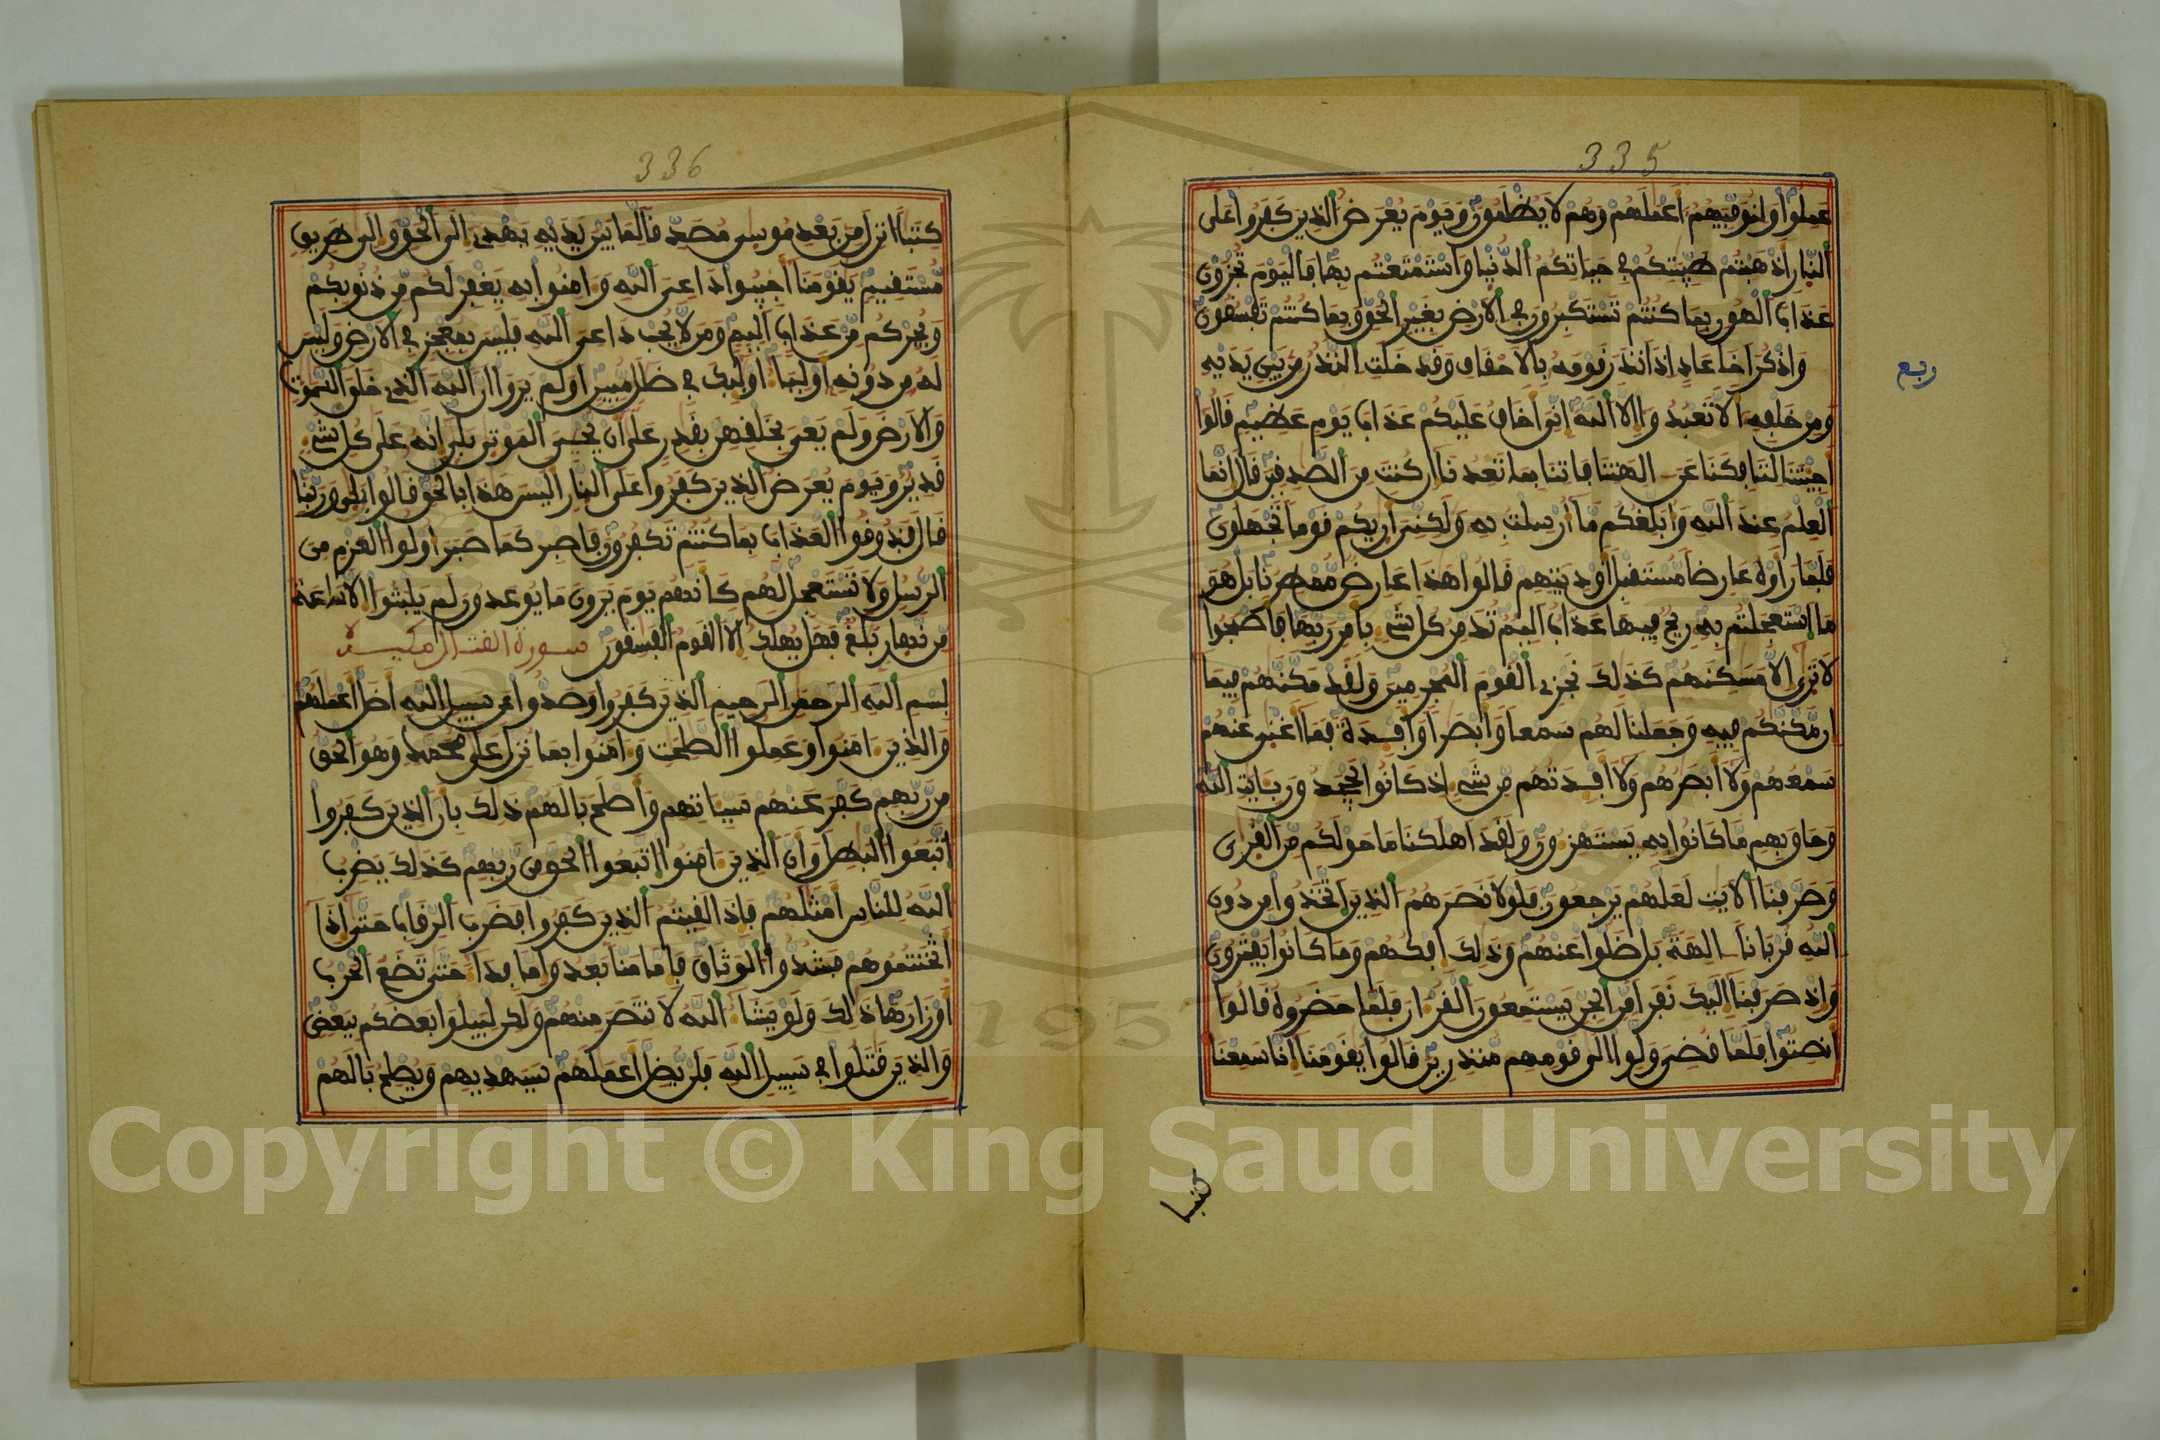 335
عملوا ولنوفيهم أعملهم وهم لا يظلمون ويوم يعرض الذين كفروا على
النار أذهبتم طيبتكم في حياتكم الدنيا واستمتعتم بها فاليوم تجزون
عذاب الهون بما كنتم تستكبرون في الارض بغير الحق وبما كنتم تفسقون
واذكر أخا عاد إذ أنذر قومه بالأحقاف وقد خلت النذر من بين يديه
ومن خلفه ألا تعبدوا إلا الله إني أخاف عليكم عذاب يوم عظيم قالوا
أجئتنا لتافكنا عن الهتنا فاتنا بما تعدنا إن كنت من الصدقين قال إنما
العلم عند الله وأبلغكم ما أرسلت به ولكني أريكم قوما تجهلون
فلما رأوه عارضا مستقبل أوديتهم قالوا هذا عارض ممطرنا بل هو
ما استعجلتم به ريح فيها عذاب اليم تدمر كل شيء بأمر ربها فأصبحوا
لا ترى إلا مسكنهم كذلك نجزي القوم المجرمين ولقد مكنهم فيما
إن مكنكم فيه وجعلنا لهم سمعا وأبصرا وأفدة فما أغنى عنهم
سمعهم ولا أبصرهم ولا أفدتهم من شيء إذ كانوا يجحدون بايت الله
وحاق بهم ما كانوا به يستهزون ولقد اهلكنا ما حولكم من القرى
وصرفنا الايت لعلهم يرجعون فلولا نصرهم الذين اتخذوا من دون
الله قربانا الهة بل ضلوا عنهم وذلك افكهم وما كانوا يفترون
وإذ صرفنا إليك نفرا من الجن يستمعون القرءان فلما حضروه قالوا
أنصتوا فلما قضى ولوا الى قومهم منذرين قالوا يقومنا إنا سمعنا
ربع
كتبا
336
كتبا أنزل من بعد موسى مصدقا لما بين يديه يهدي إلى الحق وإلى طريق
مستقيم يقومنا أجيبوا داعي الله وءامنوا به يغفر لكم من ذنوبكم
ويجركم من عذاب اليم ومن لا يجب داعي الله فليس بمعجز في الارض وليس
له من دونه أولياء أوليك في ضلل مبين أولم يروا أن الله الذي خلق السموت
والارض ولم يعي بخلقهن بقدر على أن يحيي الموتى بلى إنه على كل شيء
قدير ويوم يعرض الذين كفروا على النار أليس هذا بالحق قالوا بلى وربنا
قال فذوقوا العذاب بما كنتم تكفرون فاصبر كما صبر أولوا العزم من
الرسل ولا تستعجل لهم كأنهم يوم يرون ما يوعدون لم يلبثوا إلا ساعة
من نهار بلغ فهل يهلك إلا القوم الفسقون سورة القتال مكية
بسم الله الرحمن الرحيم الذين كفروا وصدوا عن سبيل الله أضل أعملهم
والذين ءامنوا وعملوا الصلحت وءامنوا بما نزل على محمد وهو الحق
من ربهم كفر عنهم سياتهم وأصلح بالهم ذلك بأن الذين كفروا
اتبعوا البطل وأن الذين ءامنوا اتبعوا الحق من ربهم كذلك يضرب
الله للناس أمثلهم فإذا لقيتم الذين كفروا فضرب الرقاب حتى إذا
أثخنتموهم فشدوا الوثاق فإما منا بعد وإما فداء حتى تضع الحرب
أوزارها ذلك ولو يشاء الله لانتصر منهم ولكن ليبلوا بعضكم ببعض
والذين قتلوا في سبيل الله فلن يضل أعملهم سيهديهم ويصلح بالهم
1957
Copyright © King Saud University